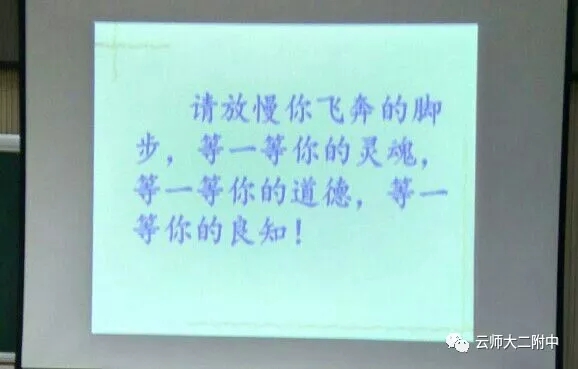 请放慢你飞奔的脚
步，等一等你的灵魂，
等一等你的道德，等一
等你的良知！
云师大二附中